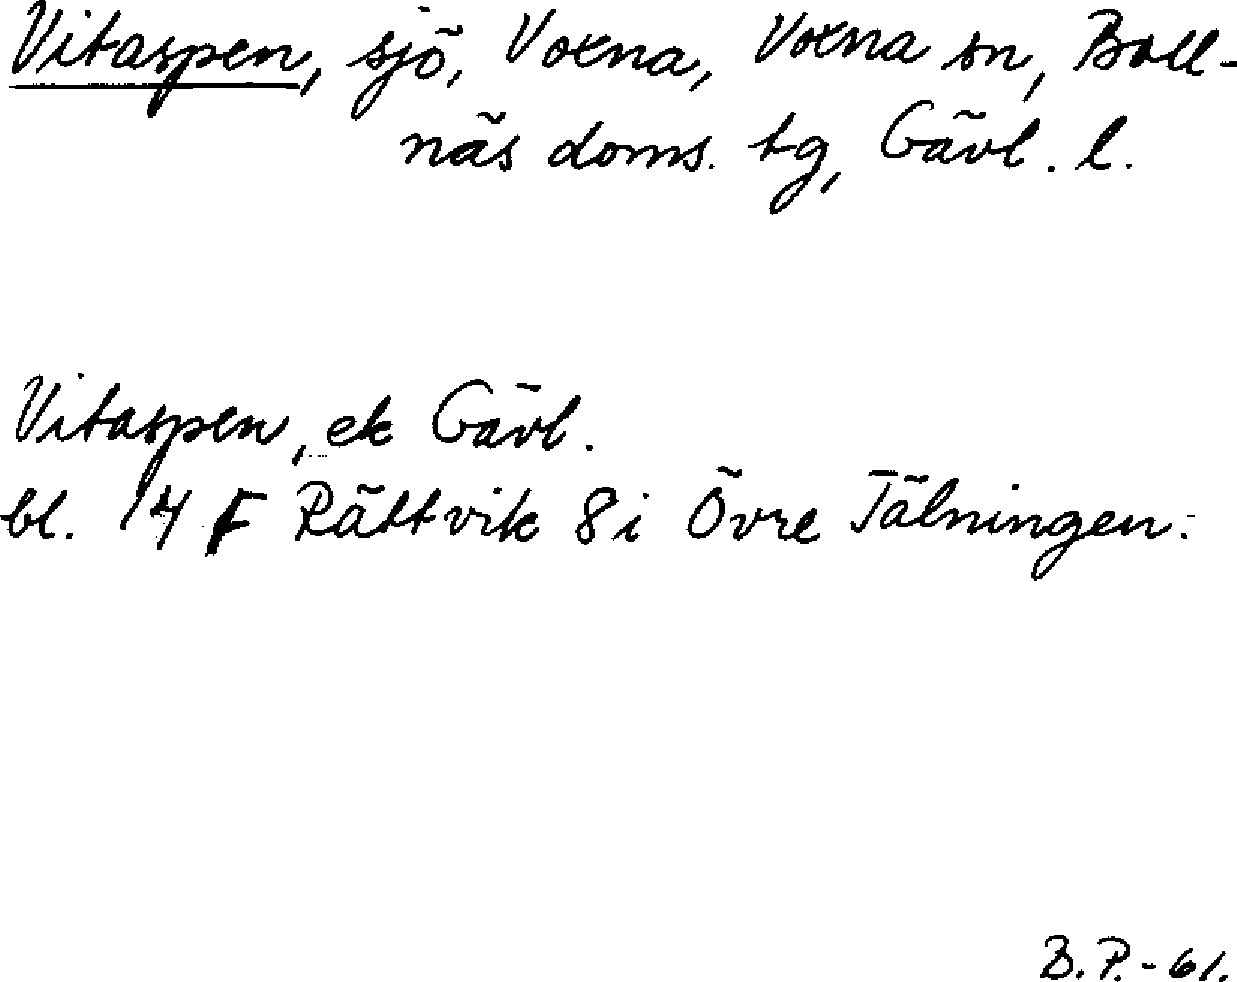 Vitaspen, sjö, Voxna, Voxna sn, Boll-
näs doms. tg, Gävl. l.
Vitaspen, ek Gävl.
bl. 14 F Rättvik 8i Övre Tälningen.
B.P.-61.